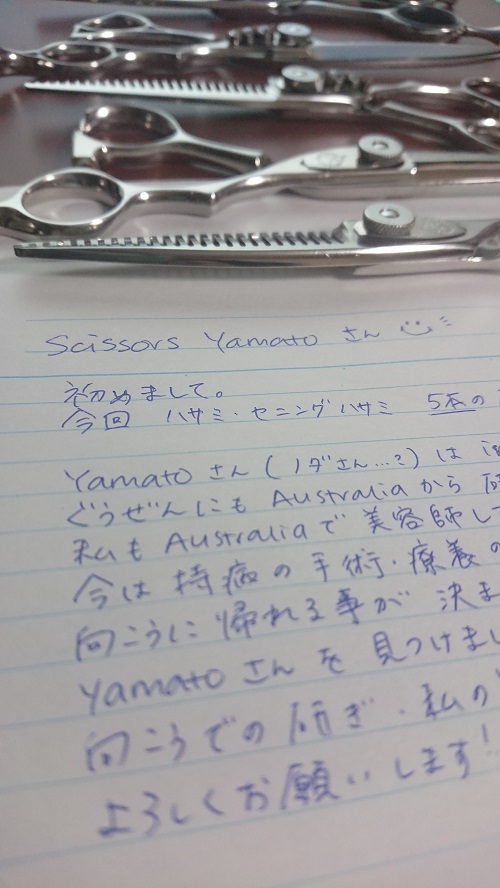 Scissors Yamato さん
初めまして。
今回 ハサミ・セニングハサミ 5本の
Yamato さん (ノダさん…?) は
どうぜんにも Australia から 研
私も Australia で 美容師して
今は 持病の 手術・療養の
向こうに 帰れる事が 決ま
Yamato さん を 見つけまし
向こうでの 研ぎ、私の
よろしくお願いします!